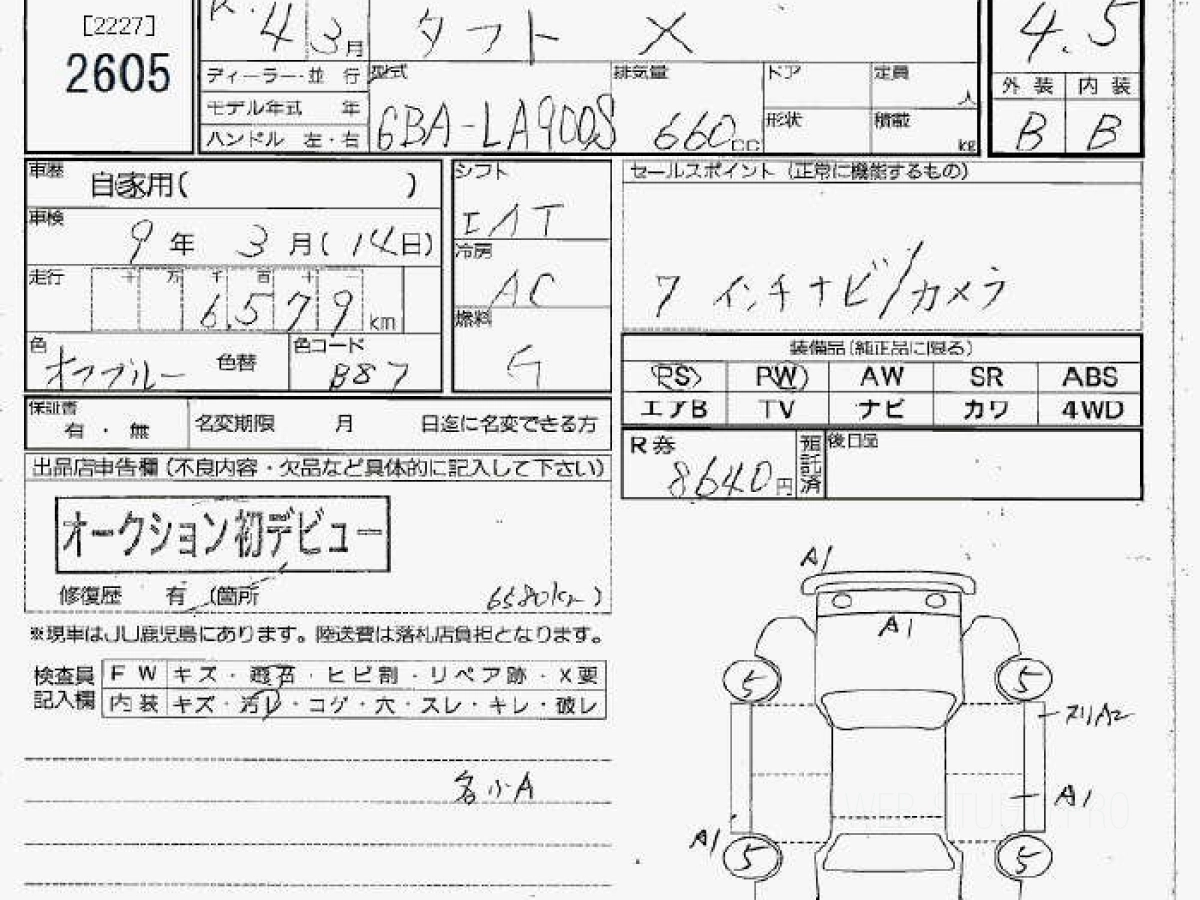 [2227]
2605
R. 4 3月 タフト X 4.5
ディーラー・並行 型式 排気量 ドア 定員 人 外装 内装
モデル年式 年
ハンドル 左・右 6BA-LA900S 660cc 形状 積載 kg B B
車歴 自家用( )
シフト
セールスポイント (正常に機能するもの)
車検 9年 3月(14日)
冷房 AC
7インチナビ/カメラ
走行 十 万 千 百 十 一
6,579 km
燃料 G
色 色替 色コード B87
装備品(純正品に限る)
PS PW AW SR ABS
エアB TV ナビ カワ 4WD
保証書 有・無 名変期限 月 日迄に名変できる方
R券 8640円 預託済 後日品
出品店申告欄(不良内容・欠品など具体的に記入して下さい)
オークション初デビュー
修復歴 有 (箇所 6580km)
※現車はJU鹿児島にあります。陸送費は落札店負担となります。
検査員記入欄 FW キズ・飛石・ヒビ割・リペア跡・X要
内装 キズ・汚レ・コゲ・穴・スレ・キレ・破レ
各小A
A1
A1
5 5
スリA2
A1
A1
5 5
WEB STUDIO PRO